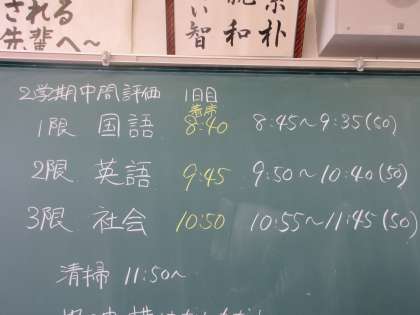 される
先輩へ~
い智
和
朴
2学期中間評価 1日目
着席
1限 国語 8:40 8:45~9:35(50)
2限 英語 9:45 9:50~10:40(50)
3限 社会 10:50 10:55~11:45(50)
清掃 11:50~